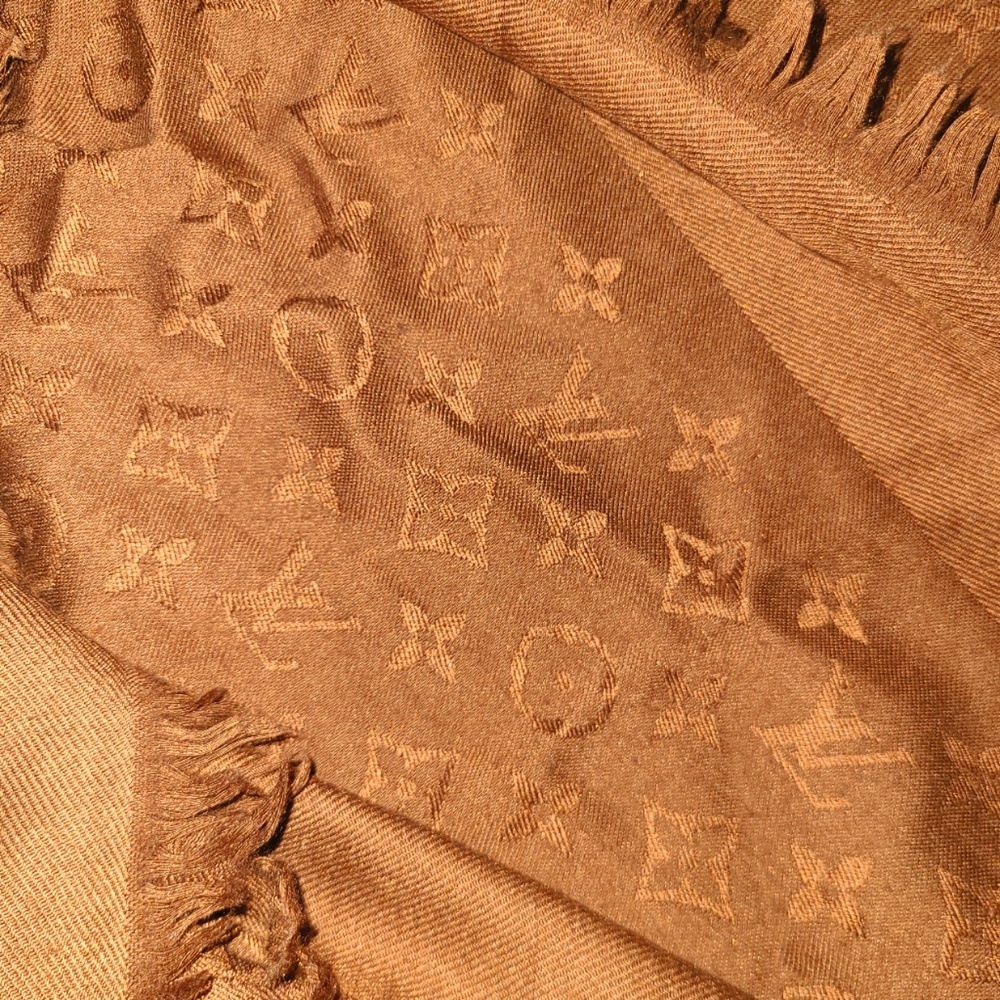 LV
LV
LV
LV
LV